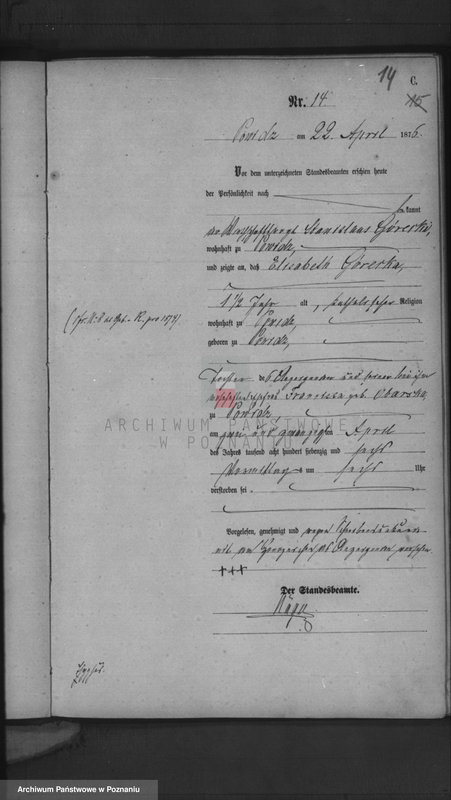 14 C.
15
Nr. 14
Powidz am 22 April 1876.
Vor dem unterzeichneten Standesbeamten erschien heute
der Persönlichkeit nach
be kannt
Stanislaus Górecki,
wohnhaft zu Powidz,
und zeigte an, daß Elisabeth Górecka,
1 1/2 Jahr alt, katholischer Religion
wohnhaft zu Powidz,
geboren zu Powidz,
Tochter des Anzeigenden und seiner
Francisca geb.
zu Powidz,
am zwei und zwanzigsten April
des Jahres tausend acht hundert siebenzig und sechs
Vormittags um sechs Uhr
verstorben sei.
Vorgelesen, genehmigt und wegen
des Anzeigenden versehen
+++
Der Standesbeamte.
ARCHIWUM PAŃSTWOWE
W POZNANIU
Archiwum Państwowe w Poznaniu